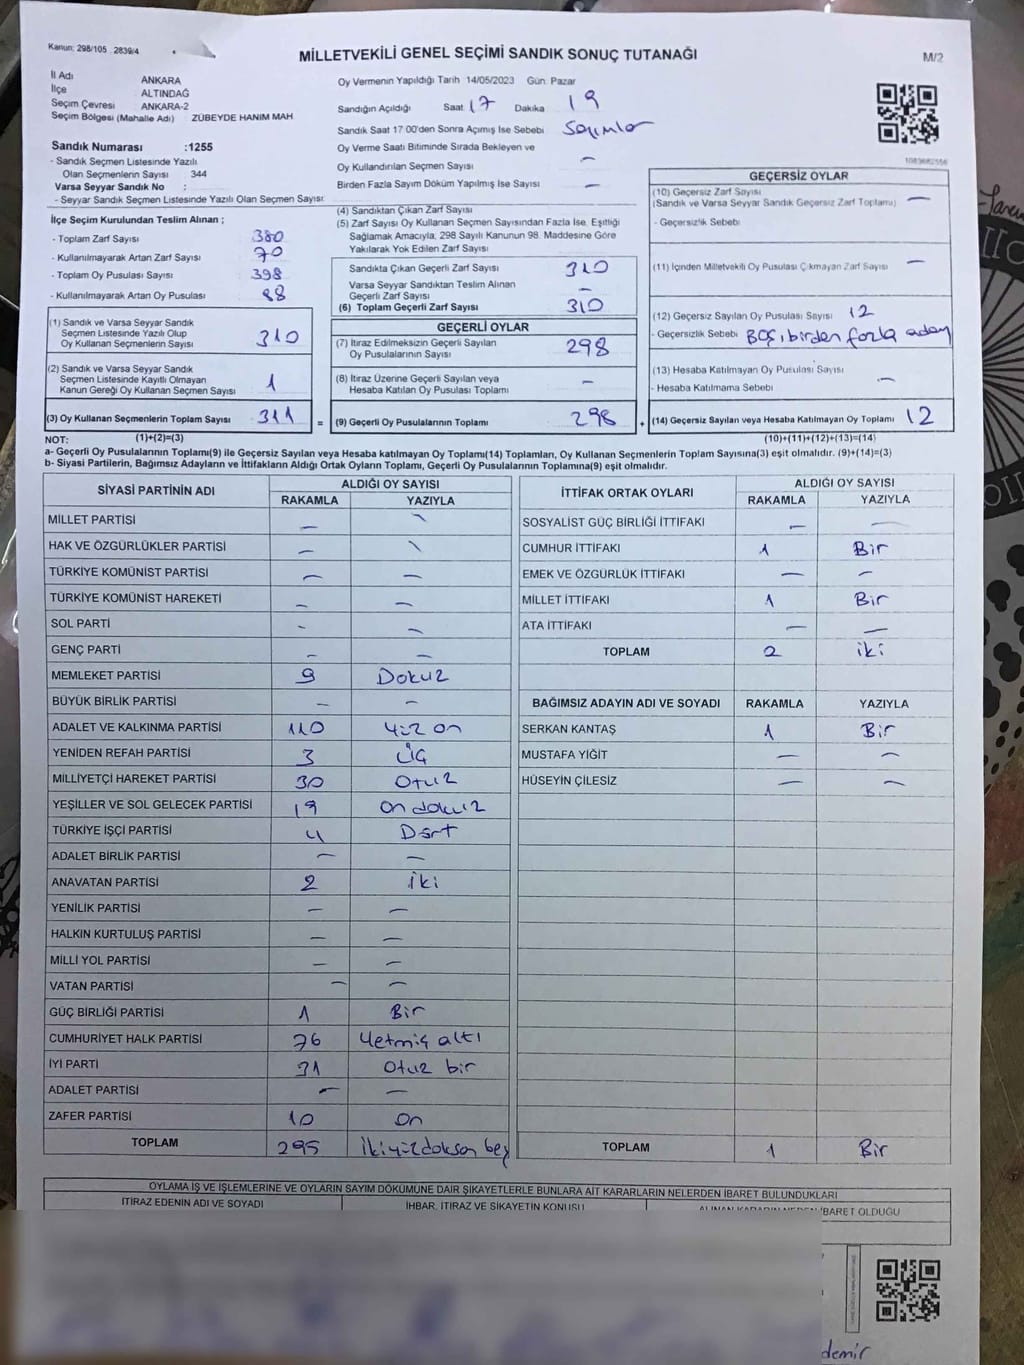 Kanun: 298/105 2839/4
MİLLETVEKİLİ GENEL SEÇİMİ SANDIK SONUÇ TUTANAĞI
M/2
İl Adı ANKARA
İlçe ALTINDAĞ
Seçim Çevresi ANKARA-2
Seçim Bölgesi (Mahalle Adı) ZÜBEYDE HANIM MAH
Sandık Numarası :1255
- Sandık Seçmen Listesinde Yazılı
Olan Seçmenlerin Sayısı 344
Varsa Seyyar Sandık No :
- Seyyar Sandık Seçmen Listesinde Yazılı Olan Seçmen Sayısı:
Oy Vermenin Yapıldığı Tarih 14/05/2023 Gün. Pazar
Sandığın Açıldığı Saat 17 Dakika 19
Sandık Saat 17 00'den Sonra Açımış İse Sebebi
Oy Verme Saati Bitiminde Sırada Bekleyen ve
Oy Kullandırılan Seçmen Sayısı –
Birden Fazla Sayım Döküm Yapılmış İse Sayısı –
İlçe Seçim Kurulundan Teslim Alınan ;
- Toplam Zarf Sayısı 380
- Kullanılmayarak Artan Zarf Sayısı 70
- Toplam Oy Pusulası Sayısı 398
- Kullanılmayarak Artan Oy Pusulası 88
(1) Sandık ve Varsa Seyyar Sandık
Seçmen Listesinde Yazılı Olup
Oy Kullanan Seçmenlerin Sayısı 310
(2) Sandık ve Varsa Seyyar Sandık
Seçmen Listesinde Kayıtlı Olmayan
Kanun Gereği Oy Kullanan Seçmen Sayısı 1
(3) Oy Kullanan Seçmenlerin Toplam Sayısı 311 =
(1)+(2)=(3)
(4) Sandıktan Çıkan Zarf Sayısı
(5) Zarf Sayısı Oy Kullanan Seçmen Sayısından Fazla İse, Eşitliği
Sağlamak Amacıyla, 298 Sayılı Kanunun 98. Maddesine Göre
Yakılarak Yok Edilen Zarf Sayısı
Sandıkta Çıkan Geçerli Zarf Sayısı 310
Varsa Seyyar Sandıktan Teslim Alınan
Geçerli Zarf Sayısı –
(6) Toplam Geçerli Zarf Sayısı 310
GEÇERLİ OYLAR
(7) İtiraz Edilmeksizin Geçerli Sayılan
Oy Pusulalarının Sayısı 298
(8) İtiraz Üzerine Geçerli Sayılan veya
Hesaba Katılan Oy Pusulası Toplamı –
(9) Geçerli Oy Pusulalarının Toplamı 298 +
GEÇERSİZ OYLAR
(10) Geçersiz Zarf Sayısı
(Sandık ve Varsa Seyyar Sandık Geçersiz Zarf Toplamı) –
- Geçersizlik Sebebi
(11) İçinden Milletvekili Oy Pusulası Çıkmayan Zarf Sayısı –
(12) Geçersiz Sayılan Oy Pusulası Sayısı 12
- Geçersizlik Sebebi Boş, birden fazla aday
(13) Hesaba Katılmayan Oy Pusulası Sayısı –
- Hesaba Katılmama Sebebi
(14) Geçersiz Sayılan veya Hesaba Katılmayan Oy Toplamı 12
(10)+(11)+(12)+(13)=(14)
NOT:
a- Geçerli Oy Pusulalarının Toplamı(9) ile Geçersiz Sayılan veya Hesaba katılmayan Oy Toplamı(14) Toplamları, Oy Kullanan Seçmenlerin Toplam Sayısına(3) eşit olmalıdır. (9)+(14)=(3)
b- Siyasi Partilerin, Bağımsız Adayların ve İttifakların Aldığı Ortak Oyların Toplamı, Geçerli Oy Pusulalarının Toplamına(9) eşit olmalıdır.
SİYASİ PARTİNİN ADI ALDIĞI OY SAYISI
RAKAMLA YAZIYLA
MİLLET PARTİSİ – –
HAK VE ÖZGÜRLÜKLER PARTİSİ – –
TÜRKİYE KOMÜNİST PARTİSİ – –
TÜRKİYE KOMÜNİST HAREKETİ – –
SOL PARTİ – –
GENÇ PARTİ – –
MEMLEKET PARTİSİ 9 Dokuz
BÜYÜK BİRLİK PARTİSİ – –
ADALET VE KALKINMA PARTİSİ 110 Yüz on
YENİDEN REFAH PARTİSİ 3 Üç
MİLLİYETÇİ HAREKET PARTİSİ 30 Otuz
YEŞİLLER VE SOL GELECEK PARTİSİ 19 on dokuz
TÜRKİYE İŞÇİ PARTİSİ 4 Dört
ADALET BİRLİK PARTİSİ – –
ANAVATAN PARTİSİ 2 İki
YENİLİK PARTİSİ – –
HALKIN KURTULUŞ PARTİSİ – –
MİLLİ YOL PARTİSİ – –
VATAN PARTİSİ – –
GÜÇ BİRLİĞİ PARTİSİ 1 Bir
CUMHURİYET HALK PARTİSİ 76 Yetmiş altı
İYİ PARTİ 31 Otuz bir
ADALET PARTİSİ – –
ZAFER PARTİSİ 10 On
TOPLAM 295 İkiyüzdoksan beş
İTTİFAK ORTAK OYLARI ALDIĞI OY SAYISI
RAKAMLA YAZIYLA
SOSYALİST GÜÇ BİRLİĞİ İTTİFAKI – –
CUMHUR İTTİFAKI 1 Bir
EMEK VE ÖZGÜRLÜK İTTİFAKI – –
MİLLET İTTİFAKI 1 Bir
ATA İTTİFAKI – –
TOPLAM 2 iki
BAĞIMSIZ ADAYIN ADI VE SOYADI RAKAMLA YAZIYLA
SERKAN KANTAŞ 1 Bir
MUSTAFA YİĞİT – –
HÜSEYİN ÇİLESİZ – –
TOPLAM 1 Bir
OYLAMA İŞ VE İŞLEMLERİNE VE OYLARIN SAYIM DÖKÜMÜNE DAİR ŞİKAYETLERLE BUNLARA AİT KARARLARIN NELERDEN İBARET BULUNDUKLARI
İTİRAZ EDENİN ADI VE SOYADI İHBAR, İTİRAZ VE ŞİKAYETİN KONUSU İBARET OLDUĞU
demir